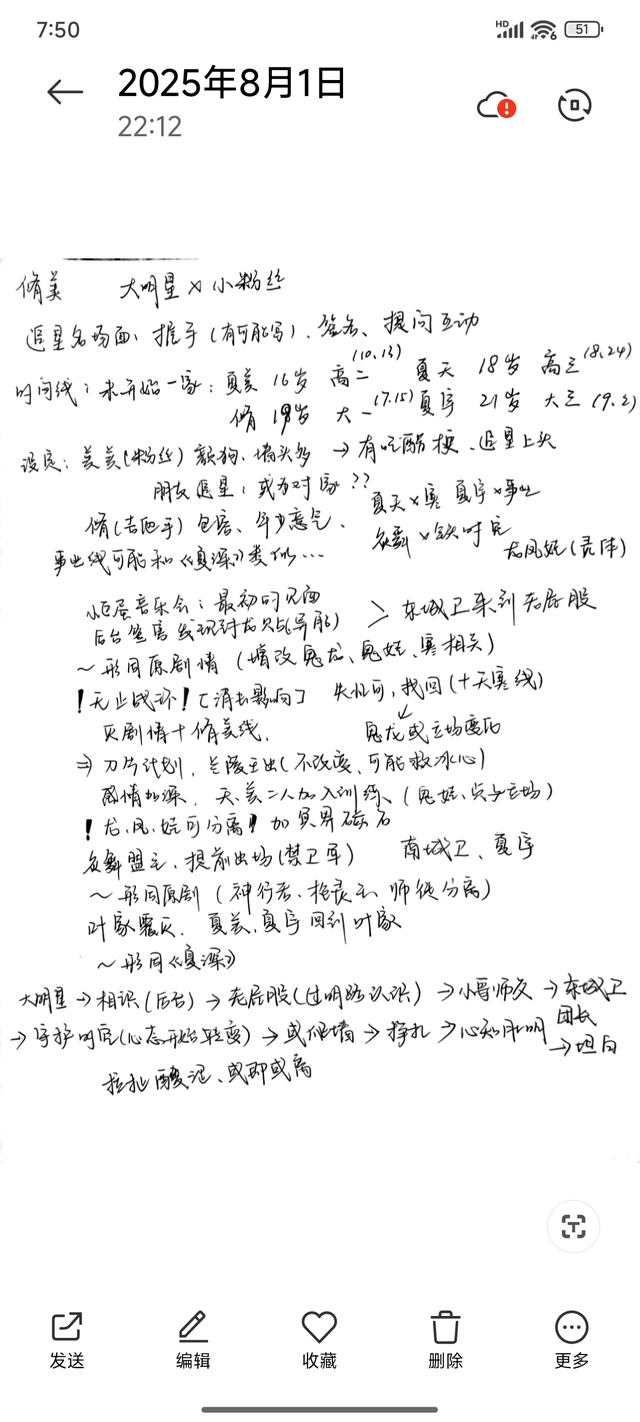 7:50
HD 6 51
2025年8月1日
22:12
修美 大明星×小粉丝
追星名场面：握手(有可能写)、签名、提问互动
(10.13) (8.24)
时间线：未开始一家：夏美 16岁 高二 夏天 18岁 高三
(7.15) (9.2)
修 19岁 大一 夏宇 21岁 大三
设定：美美(粉丝) 颜狗、墙头多 → 有吃醋梗、追星上头
朋友追星：或为对家??
夏天×寒 夏宇×
修(吉他手) 包容、年少意气、
灸舞× 龙凤妮(灵体)
事业线可能和《夏深》类似…
小巨蛋音乐会：最初的见面
后台签名发现
> 东城卫来到老屁股
~形同原剧情 (增改鬼龙、鬼妮、寒相关)
!无止战环![消去影响] 失忆可，找回(十天寒线)
灭剧情+修美线、 鬼龙或立场变后
⇒ 刀片计划，兰陵王出(不改变、可能救冰心)
感情加深，天、美二人加入训练、(鬼妮、立场)
!龙、凤、妮可分离!加冥界磁石
灸舞盟主，提前出场(禁卫军) 南城卫、夏宇
~形同原剧 (神行者、枪灵王、师徒分离)
叶家覆灭. 夏美、夏宇回到叶家
~形同《夏深》
大明星→相识(后台)→老屁股(过明路认识)→小哥师父→东城卫
团长
→守护 (心态开始转变)→或 墙→挣扎→心知肚明
→坦白
拉扯酸涩、或即或离
发送 编辑 收藏 删除 更多